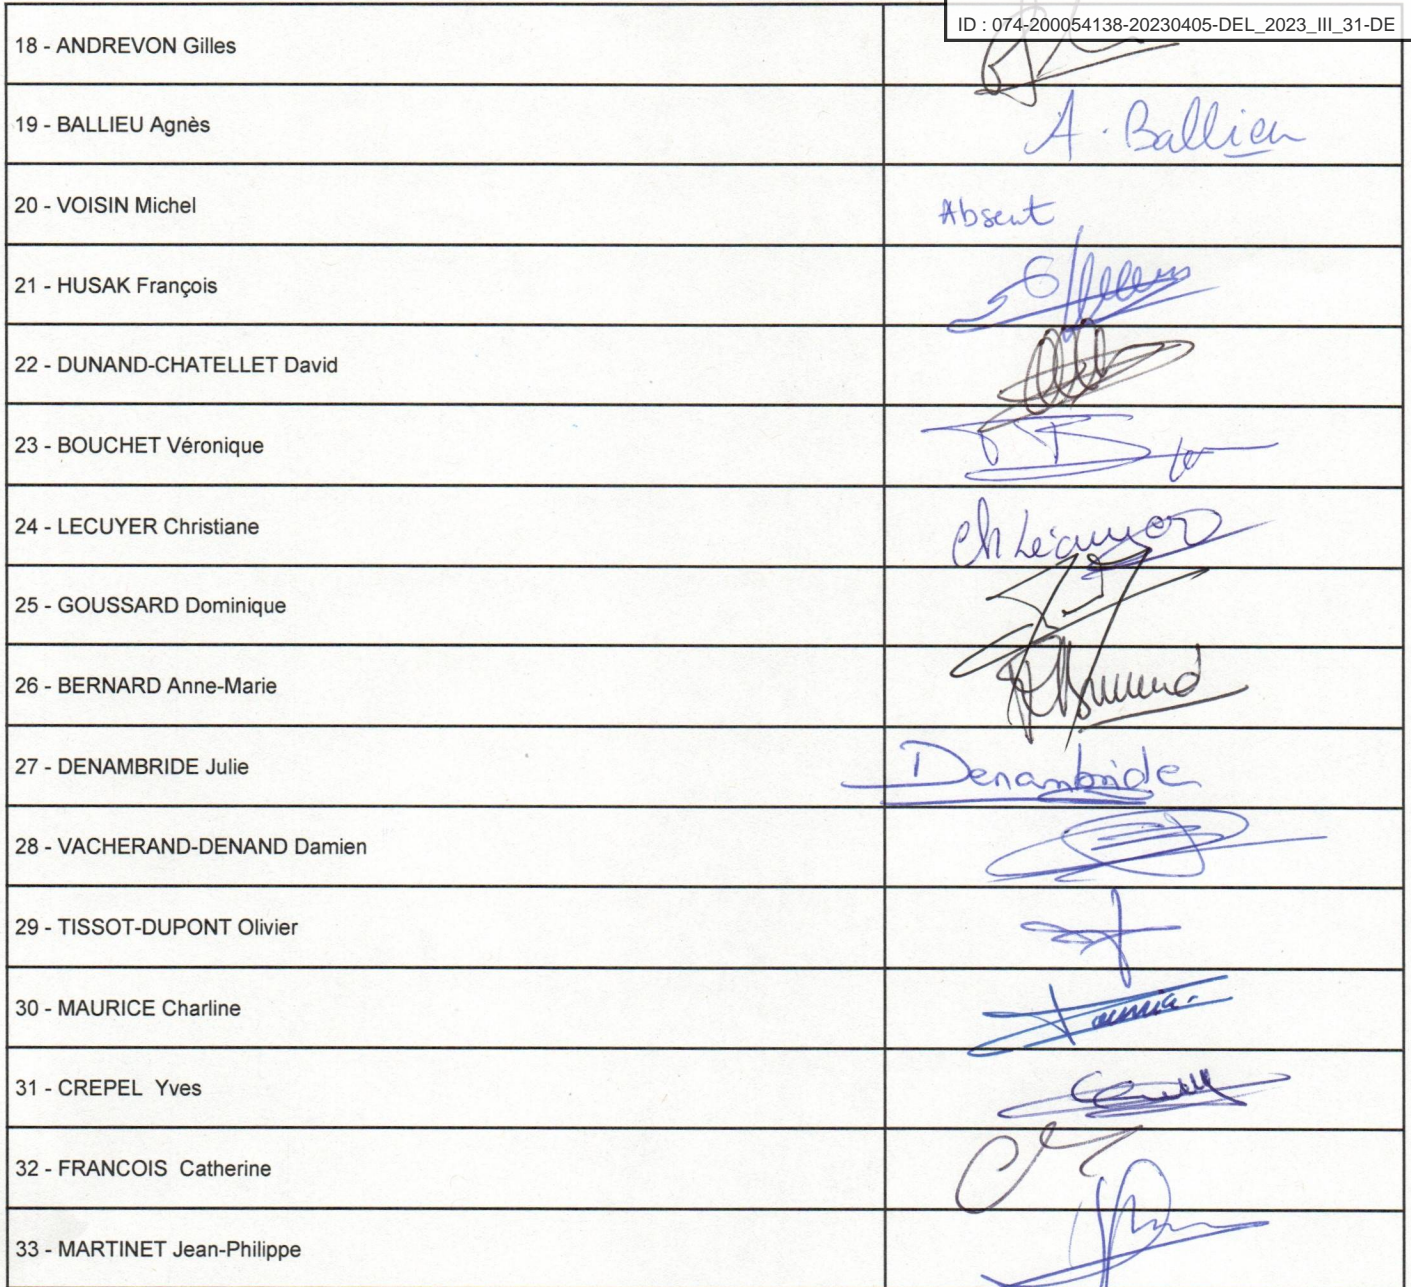 ID : 074-200054138-20230405-DEL_2023_III_31-DE
18 - ANDREVON Gilles
19 - BALLIEU Agnès
A. Ballieu
20 - VOISIN Michel
Absent
21 - HUSAK François
22 - DUNAND-CHATELLET David
23 - BOUCHET Véronique
24 - LECUYER Christiane
Ch Lécuyer
25 - GOUSSARD Dominique
26 - BERNARD Anne-Marie
27 - DENAMBRIDE Julie
Denambride
28 - VACHERAND-DENAND Damien
29 - TISSOT-DUPONT Olivier
30 - MAURICE Charline
31 - CREPEL  Yves
32 - FRANCOIS  Catherine
33 - MARTINET Jean-Philippe